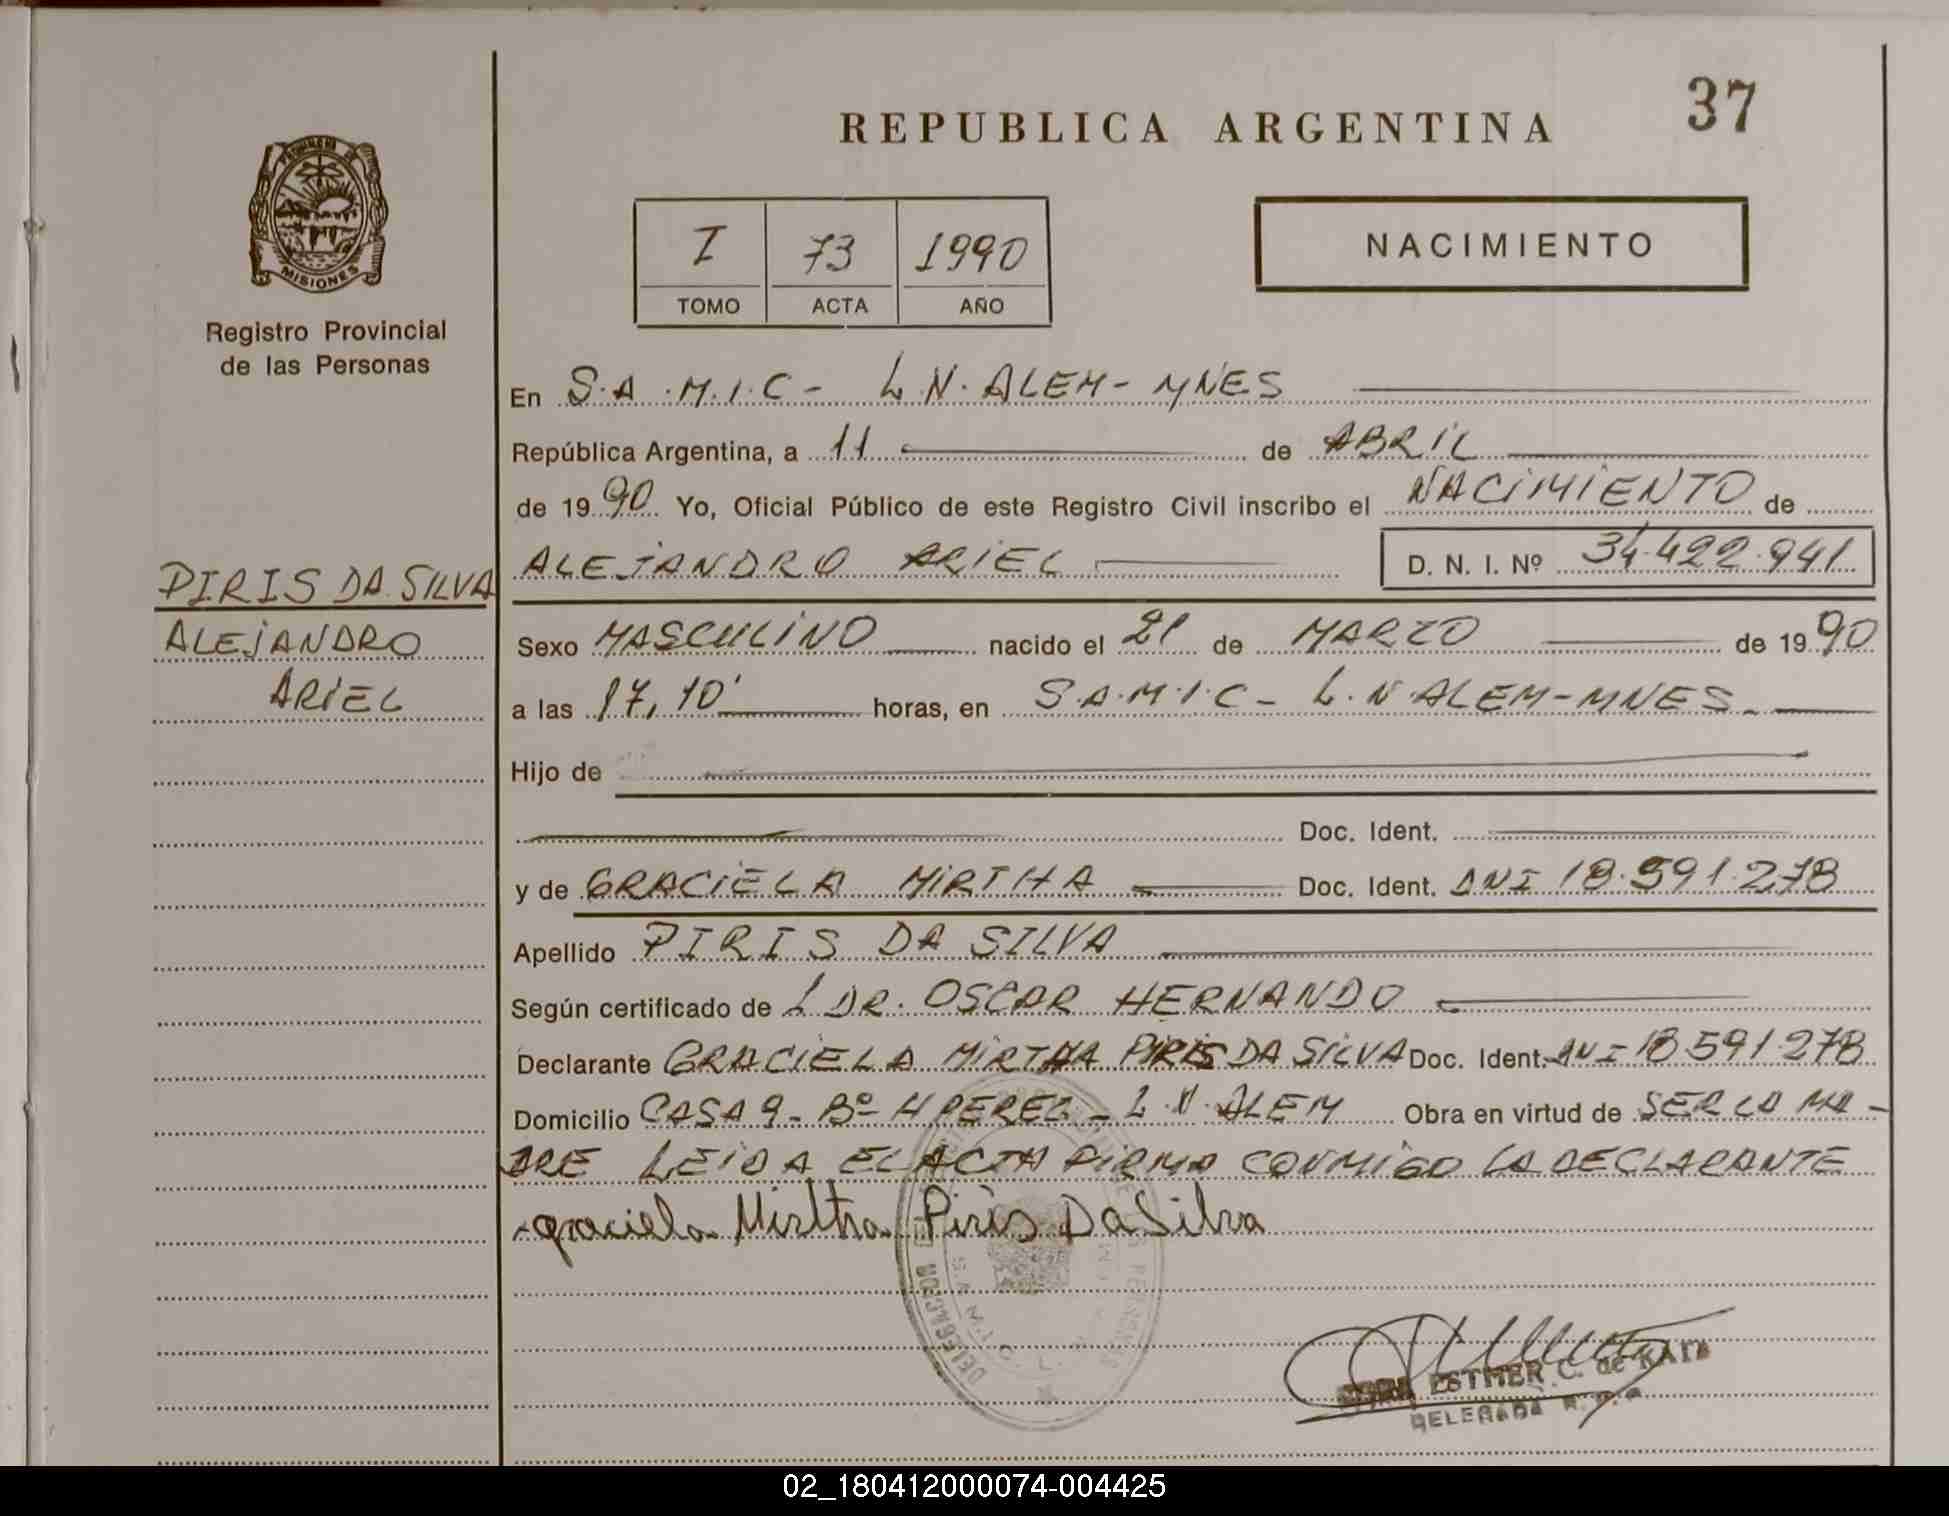 REPUBLICA ARGENTINA
37
PROVINCIA DE
MISIONES
Registro Provincial
de las Personas
I 73 1990
TOMO ACTA AÑO
NACIMIENTO
En S.A.M.I.C- L.N.ALEM- MNES
República Argentina, a 11 de ABRIL
de 1990 Yo, Oficial Público de este Registro Civil inscribo el NACIMIENTO de
ALEJANDRO ARIEL D. N. I. Nº 34.422.941
PIRIS DA SILVA
ALEJANDRO
ARIEL
Sexo MASCULINO nacido el 21 de MARZO de 1990
a las 17,10' horas, en S.A.M.I.C- L.N.ALEM-MNES-
Hijo de
Doc. Ident.
y de GRACIELA MIRTHA Doc. Ident. DNI 18.591.278
Apellido PIRIS DA SILVA
Según certificado de L DR. OSCAR HERNANDO
Declarante GRACIELA MIRTHA PIRIS DA SILVA Doc. Ident. DNI 18591278
Domicilio CASA 9- Bº- H PEREZ- L.N.ALEM Obra en virtud de SER LA MA-
DRE LEIDA EL ACTA FIRMA CONMIGO LA DECLARANTE
graciela Mirtha Piris Da Silva
DELEGACION
ESTHER C. de
DELEGADA
02_180412000074-004425